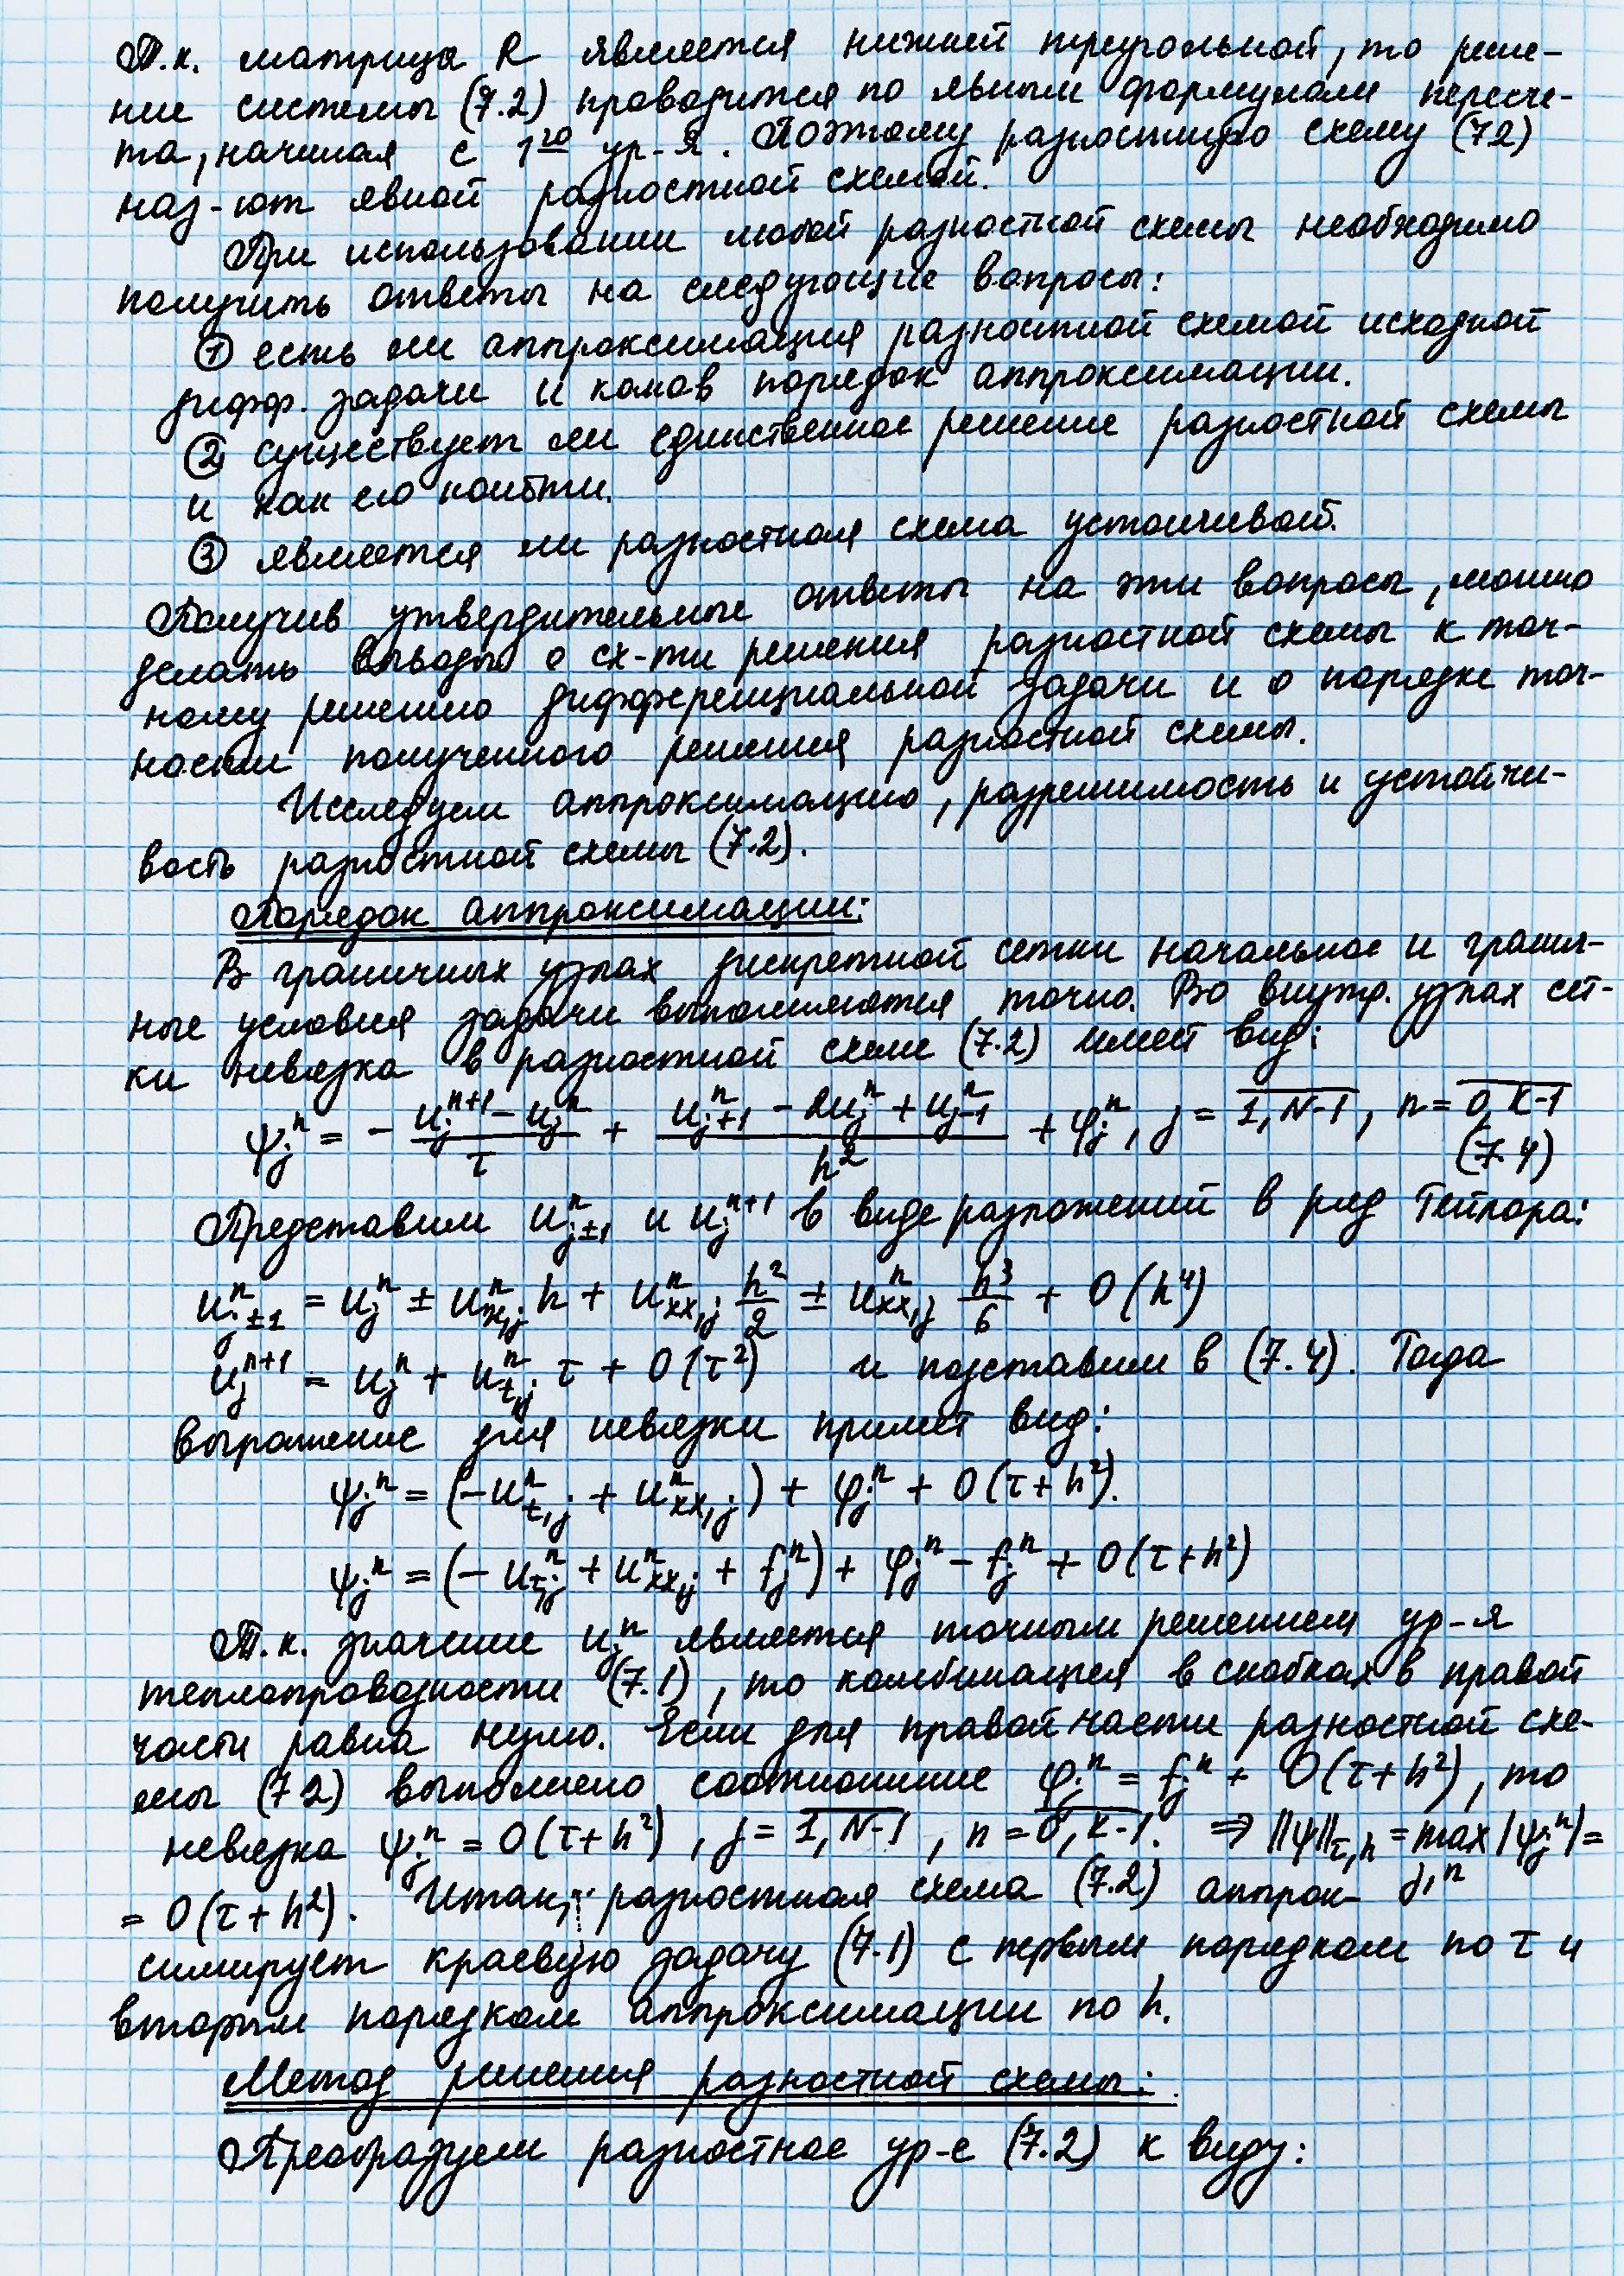 Т.к. матрица R является нижней треугольной, то реше-
ние системы (7.2) проводится по явным формулам пересче-
та, начиная с 1го ур-я. Поэтому разностную схему (7.2)
наз-ют явной разностной схемой.
При использовании любой разностной схемы необходимо
получить ответы на следующие вопросы:
① есть ли аппроксимация разностной схемой исходной
дифф. задачи и каков порядок аппроксимации.
② существует ли единственное решение разностной схемы
и как его найти.
③ является ли разностная схема устойчивой.
Получив утвердительные ответы на эти вопросы, можно
делать выводы о сх-ти решения разностной схемы к точ-
ному решению дифференциальной задачи и о порядке точ-
ности полученного решения разностной схемы.
Исследуем аппроксимацию, разрешимость и устойчи-
вость разностной схемы (7.2).
Порядок аппроксимации:
В граничных узлах дискретной сетки начальное и гранич-
ные условия задачи выполняются точно. Во внутр. узлах сет-
ки невязка в разностной схеме (7.2) имеет вид:
ψ_j^n = - (u_j^{n+1} - u_j^n)/τ + (u_{j+1}^n - 2u_j^n + u_{j-1}^n)/h^2 + φ_j^n, j = \overline{1, N-1}, n = \overline{0, K-1}
(7.4)
Представим u_{j±1}^n и u_j^{n+1} в виде разложений в ряд Тейлора:
u_{j±1}^n = u_j^n ± u_{x,j}^n h + u_{xx,j}^n h^2/2 ± u_{xx,j}^n h^3/6 + O(h^4)
u_j^{n+1} = u_j^n + u_{t,j}^n τ + O(τ^2) и подставим в (7.4). Тогда
выражение для невязки примет вид:
ψ_j^n = (-u_{t,j}^n + u_{xx,j}^n) + φ_j^n + O(τ+h^2).
ψ_j^n = (-u_{t,j}^n + u_{xx,j}^n + f_j^n) + φ_j^n - f_j^n + O(τ+h^2)
Т.к. значение u_j^n является точным решением ур-я
теплопроводности (7.1), то комбинация в скобках в правой
части равна нулю. Если для правой части разностной схе-
мы (7.2) выполнено соотношение φ_j^n = f_j^n + O(τ+h^2), то
невязка ψ_j^n = O(τ+h^2), j = \overline{1, N-1}, n = \overline{0, K-1}. ⇒ ||ψ||_{τ,h} = max_{j,n} |ψ_j^n| =
= O(τ+h^2). Итак, разностная схема (7.2) аппрок-
симирует краевую задачу (7.1) с первым порядком по τ и
вторым порядком аппроксимации по h.
Метод решения разностной схемы:
Преобразуем разностное ур-е (7.2) к виду: